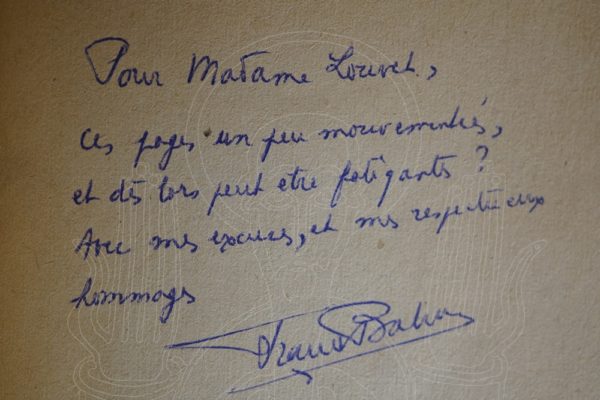 Pour Madame Louvet,
Ces pages un peu mouvementés,
et dès lors peut etre fatigants ?
Avec mes excuses, et mes respectueux
hommages